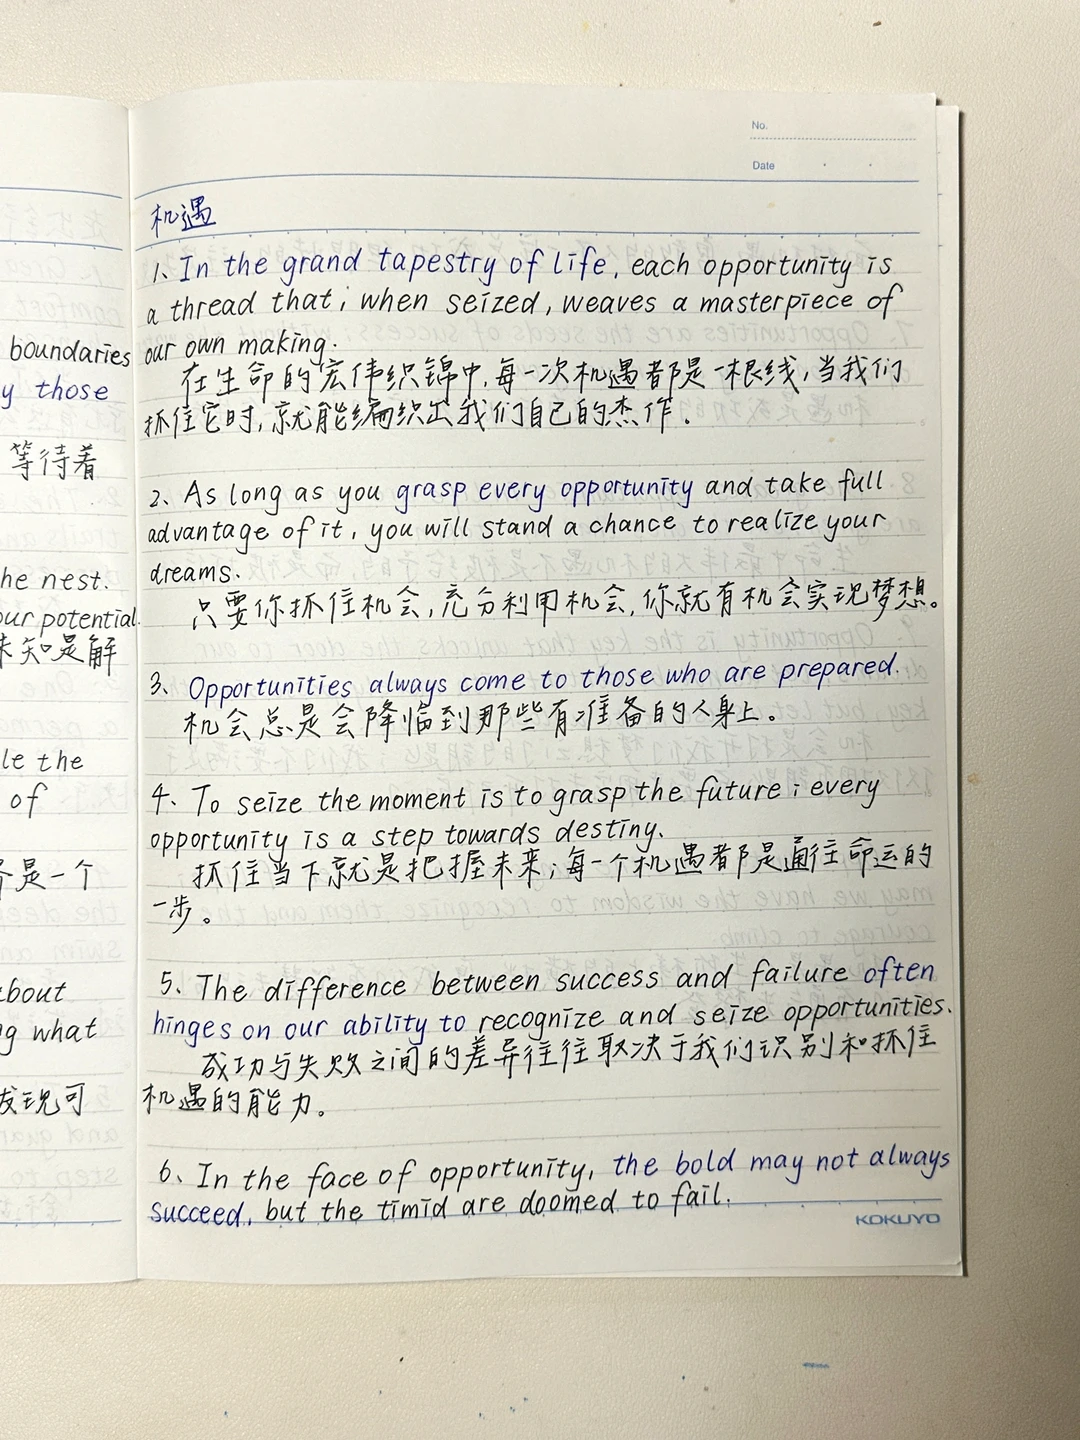 boundaries
those
等待着
he nest.
our potential.
未知是解
le the
of
是一个
about
what
发现可
No.
Date
机遇
1、In the grand tapestry of life, each opportunity is
a thread that, when seized, weaves a masterpiece of
our own making.
在生命的宏伟织锦中,每一次机遇都是一根线,当我们
抓住它时,就能编织出我们自己的杰作.
2、As long as you grasp every opportunity and take full
advantage of it, you will stand a chance to realize your
dreams.
只要你抓住机会,充分利用机会,你就有机会实现梦想。
3、Opportunities always come to those who are prepared.
机会总是会降临到那些有准备的人身上。
4、To seize the moment is to grasp the future; every
opportunity is a step towards destiny.
抓住当下就是把握未来;每一个机遇都是通往命运的
一步。
5、The difference between success and failure often
hinges on our ability to recognize and seize opportunities.
成功与失败之间的差异往往取决于我们识别和抓住
机遇的能力。
6、In the face of opportunity, the bold may not always
succeed, but the timid are doomed to fail.
KOKUYO